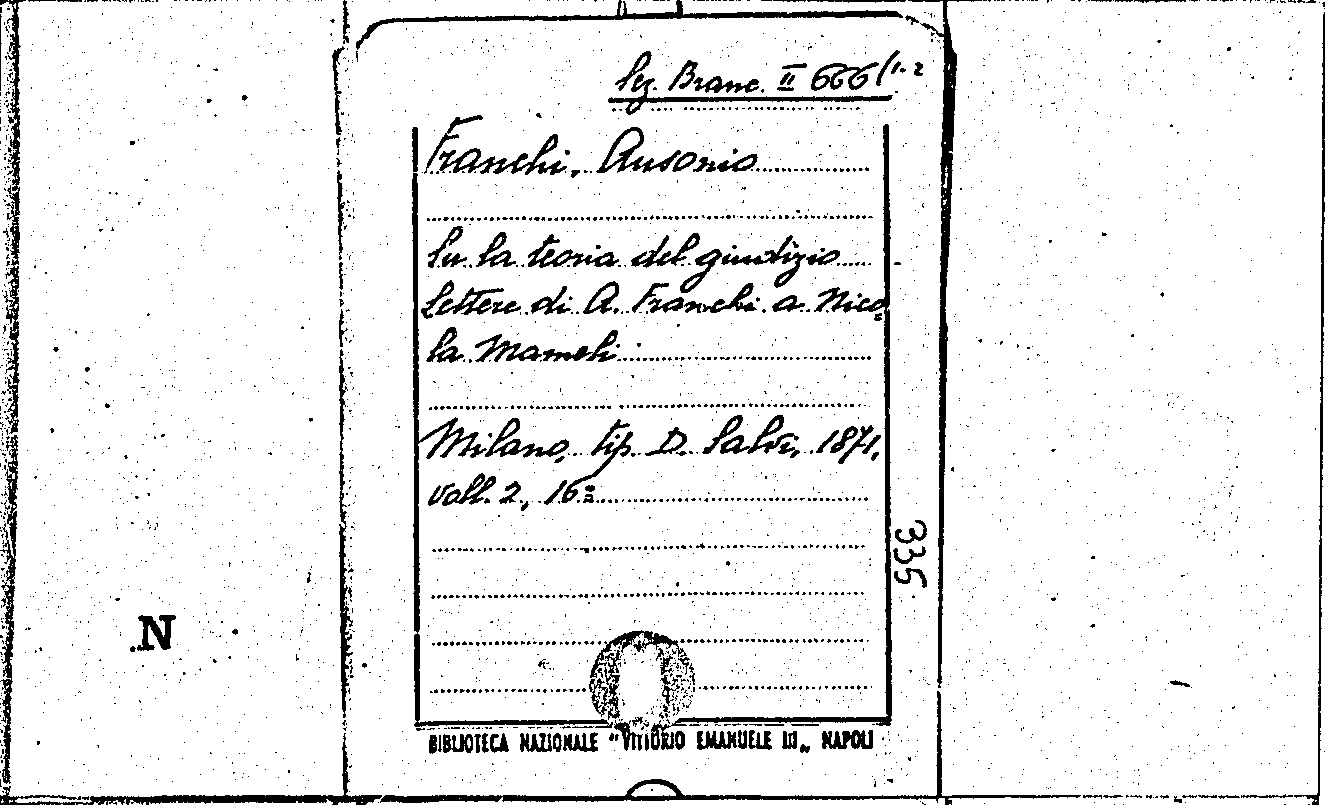 Sez. Branc. II 666(1-2
Franchi, Ausonio
Su la teoria del giudizio
Lettere di A. Franchi a Nico=
la Mameli
Milano, tip. D. Salvi, 1871,
voll. 2, 16=
335
N
BIBLIOTECA NAZIONALE "VITTORIO EMANUELE III„ NAPOLI